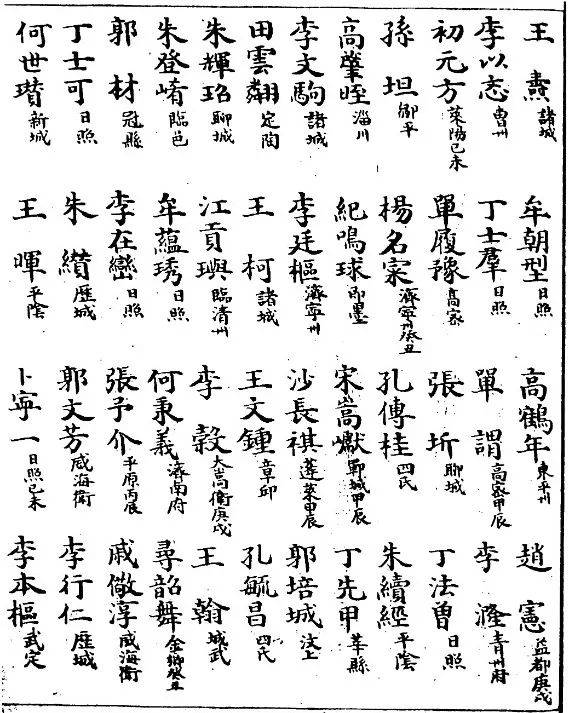 王燾 諸城 牟朝型 日照 高鶴年 東平州 趙憲 益都庚戌
李以志 曹州 丁士羣 日照 單謂 高密甲辰 李 青州府
初元方 萊陽己未 單履豫 高密 張圻 聊城 丁法曾 日照
孫坦 鄒平 楊名寀 濟寧州癸丑 孔傳桂 四氏 朱續經 平陰
高肇晊 淄川 紀鳴球 即墨 宋嵩巘 鄆城甲辰 丁先甲 莘縣
李文駒 諸城 李廷樞 濟寧州 沙長祺 蓬萊甲辰 郭培城 汶上
田雲翮 定陶 王柯 諸城 王文鍾 章邱 孔毓昌 四氏
朱輝珞 聊城 江貢璵 臨清州 李穀 大嵩衛庚戌 王翰 城武
朱登崤 臨邑 牟蘊琇 日照 何秉義 濟南府 尋韶舞 金鄉癸丑
郭材 冠縣 李在巒 日照 張予介 平原丙辰 戚儆淳 威海衛
丁士可 日照 朱纘 歷城 郭文芳 威海衛 李行仁 歷城
何世瓚 新城 王暉 平陰 卜寧一 日照己未 李本樞 武定